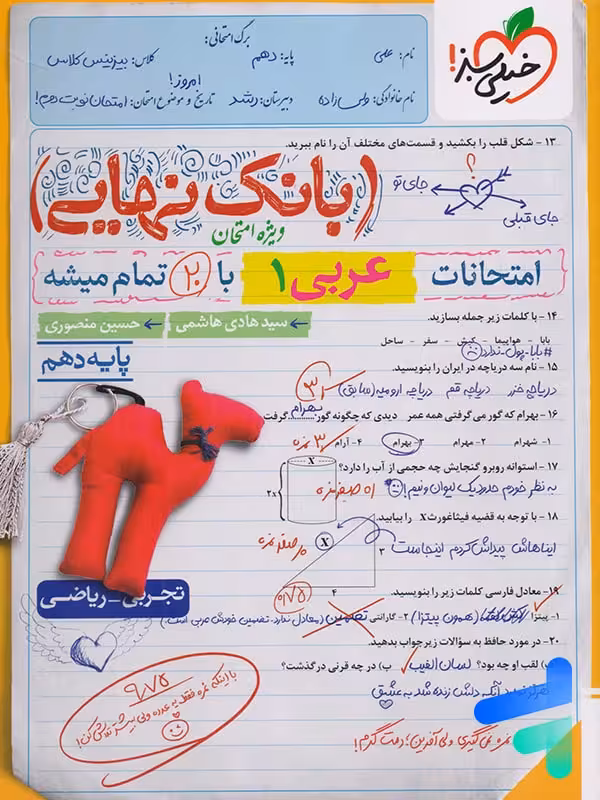 خیلی سبز!
برگ امتحانی:
نام: علی
پایه: دهم
کلاس: بیزینس کلاس
نام خانوادگی: ولی زاده
دبیرستان: رشد
تاریخ و موضوع امتحان: امتحان نوبت دهم!
امروز!
۱۳- شکل قلب را بکشید و قسمت‌های مختلف آن را نام ببرید.
؟
جای تو
جای قبلی
(بانک نهایی)
ویژه امتحان
امتحانات عربی ۱ با ۲۰ تمام میشه
سید هادی هاشمی
حسین منصوری
پایه دهم
۱۴- با کلمات زیر جمله بسازید.
بابا - هواپیما - کیش - سفر - ساحل
#بابا-پول-ندارد
۱۵- نام سه دریاچه در ایران را بنویسید.
دریاچه خزر دریاچه قم دریاچه ارومیه (سابق)
۳
۱۶- بهرام که گور می‌گرفتی همه عمر دیدی که چگونه گور بهرام گرفت
۱- شهرام ۲- مهرام ۳- بهرام ۴- آرام
۳ نمره
۱۷- استوانه روبرو گنجایش چه حجمی از آب را دارد؟
به نظر خودم حدود یک لیوان و نیم!
X
2x
۱۸- با توجه به قضیه فیثاغورث X را بیابید.
ایناهاش پیداش کردم اینجاست
X
۳
۴
۰/۷۵
۱۹- معادل فارسی کلمات زیر را بنویسید.
۱- پیتزا (همون پیتزا) ۲- گارانتی تضمین (معادل ندارد. تضمین خودش عربی است)
۲۰- در مورد حافظ به سؤالات زیر جواب بدهید.
لقب او چه بود؟ لسان الغیب ب) در چه قرنی درگذشت؟
هرگز نمیرد آنکه دلش زنده شد به عشق
تجربی-ریاضی
۹/۷۵
با اینکه نمره فقط یه عدده ولی بیشتر تلاش کن!
نمره نمی‌گیری ولی آفرین، دمت گرم!